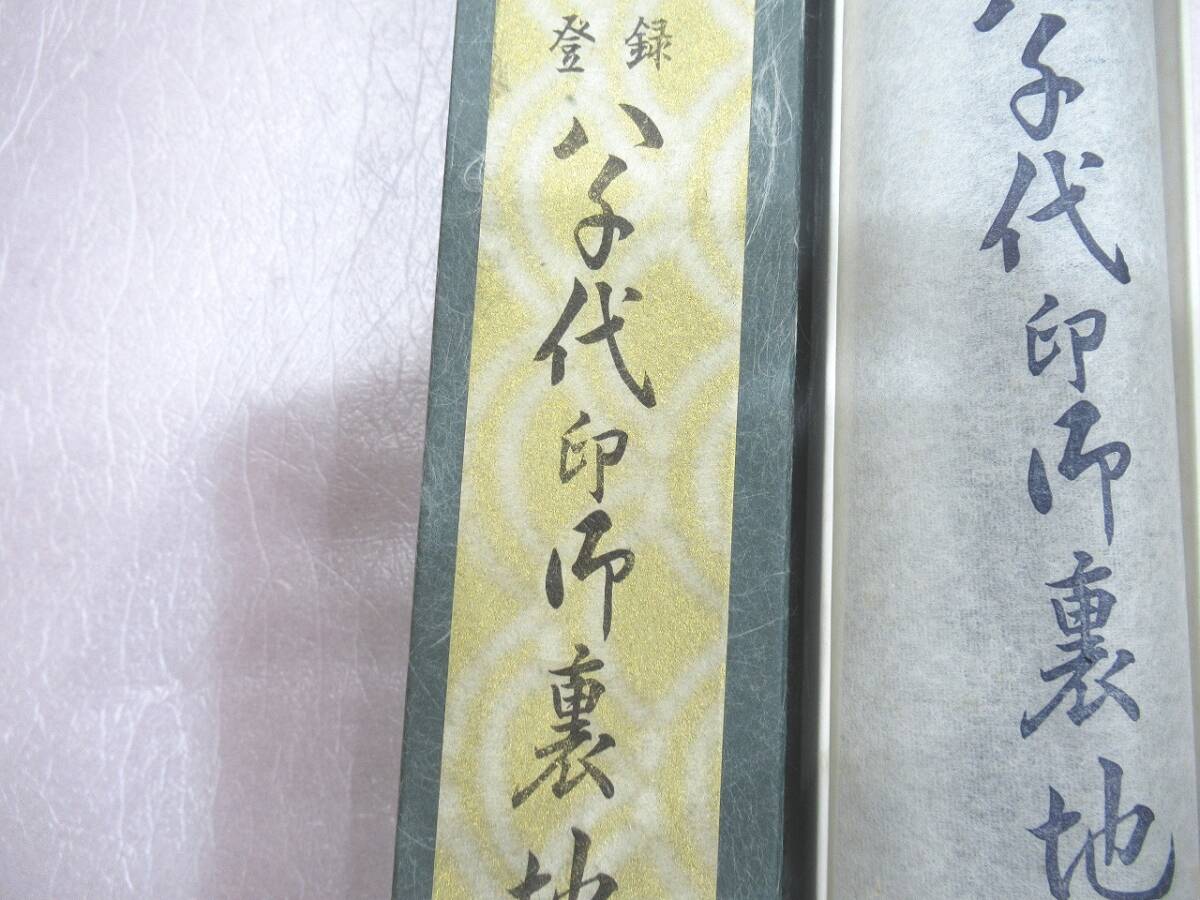 登録
八千代印御裏地
八千代印御裏地